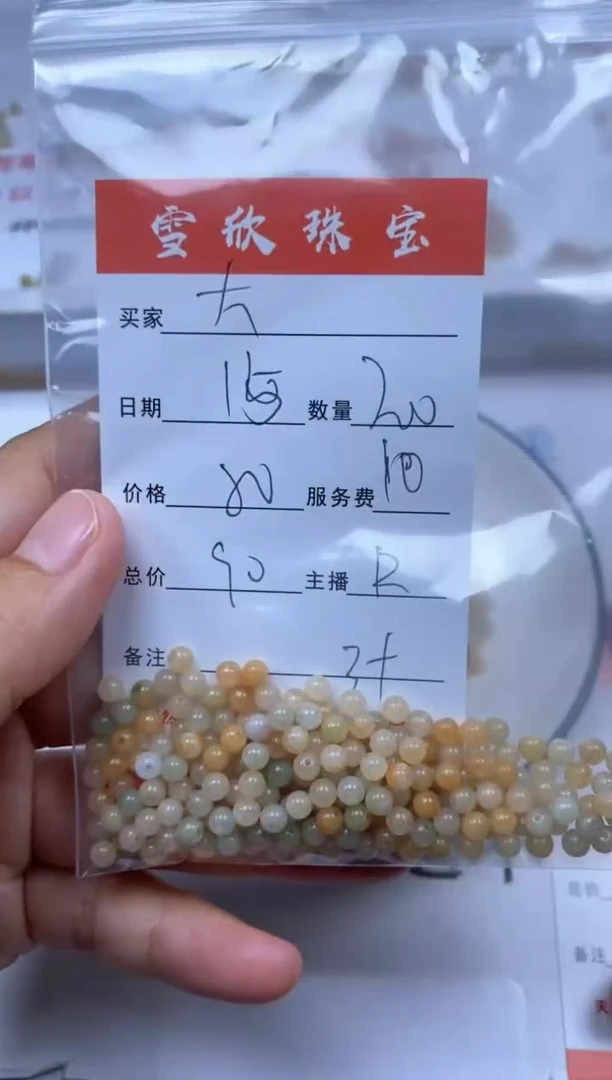 雪欣珠宝
买家 大
日期 15 数量 20
价格 80 服务费 10
总价 90 主播 R
备注
备注